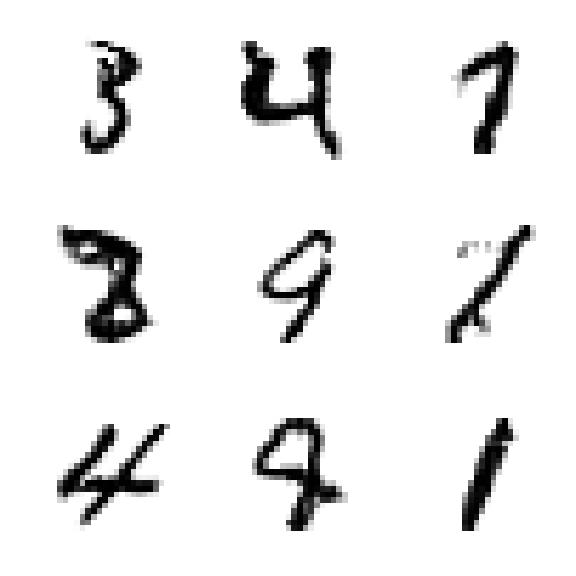 3 4 7
8 9 1
4 9 1